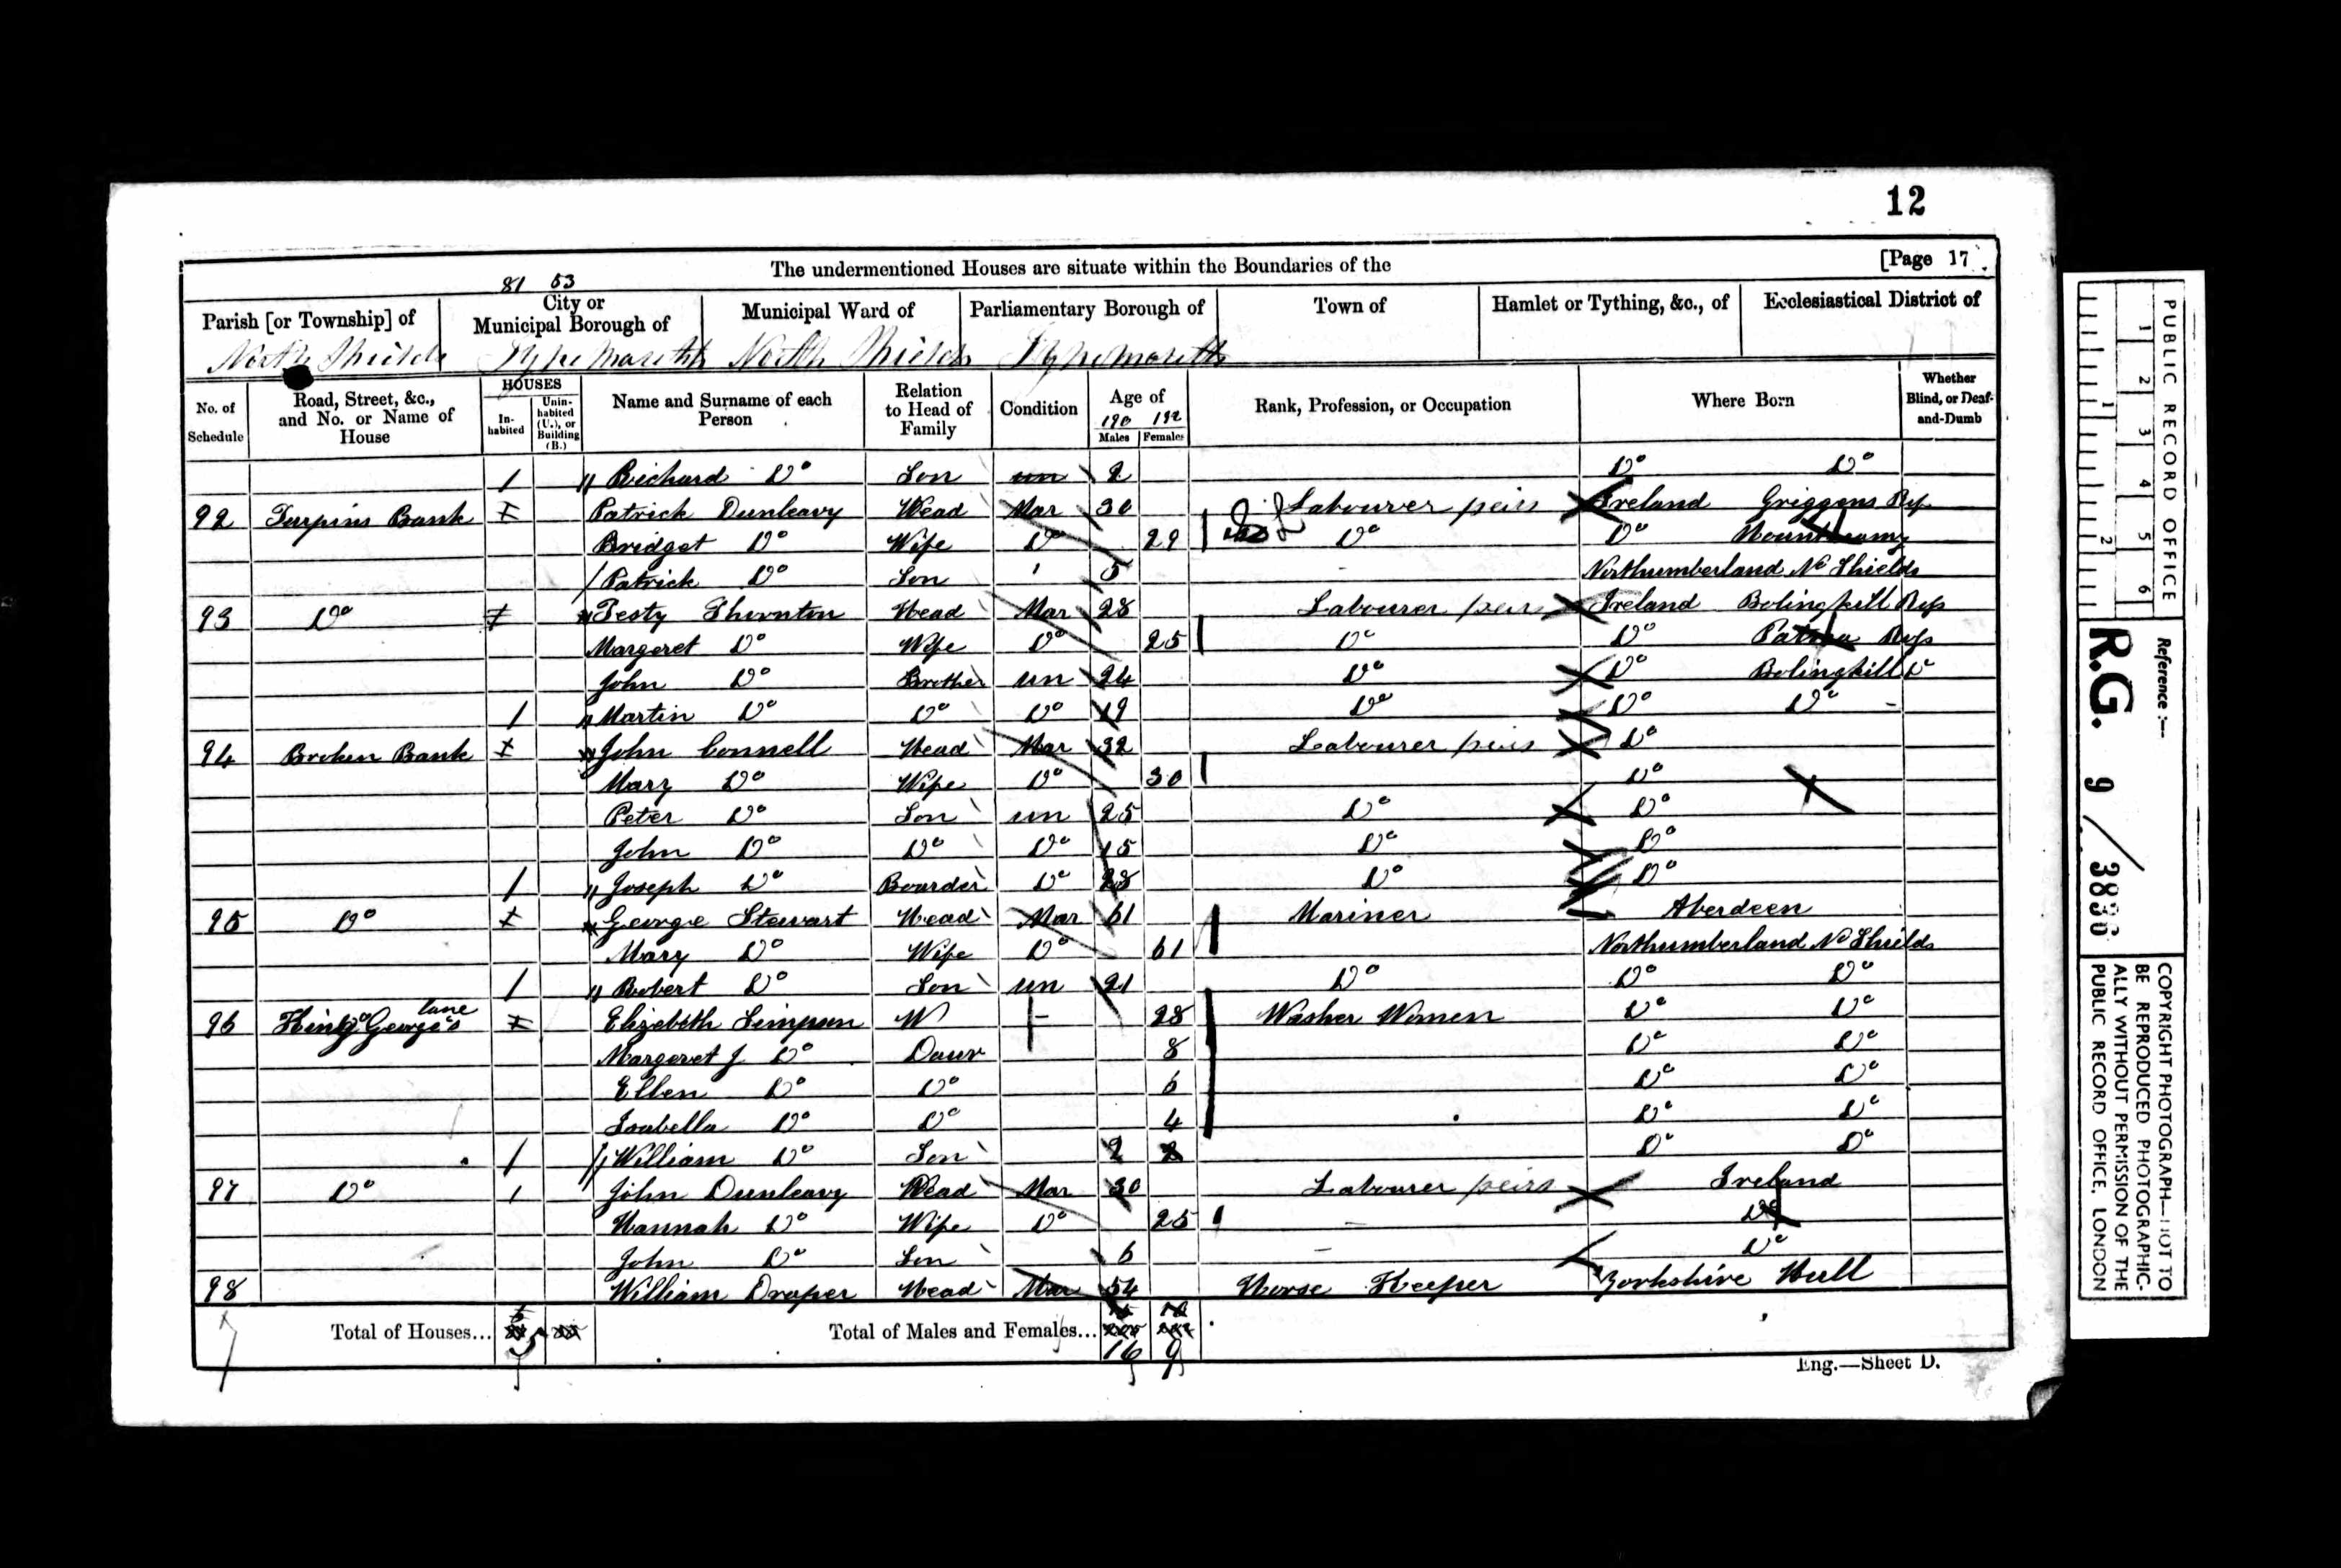 12
The undermentioned Houses are situate within the Boundaries of the [Page 17
81 53
Parish [or Township] of City or Municipal Borough of Municipal Ward of Parliamentary Borough of Town of Hamlet or Tything, &c., of Ecclesiastical District of
North Shields Tynemouth North Shields Tynemouth
No. of Schedule Road, Street, &c., and No. or Name of House HOUSES In-habited Unin-habited (U.), or Building (B.) Name and Surname of each Person Relation to Head of Family Condition Age of Males Females Rank, Profession, or Occupation Where Born Whether Blind, or Deaf-and-Dumb
190 192
1 Richard Do Son un 2 Do Do
92 Turpins Bank Patrick Dunleavy Head Mar 30 Labourer Ireland
Bridget Do Wife Do 29 Do Do
Patrick Do Son 5 Northumberland No Shields
93 Do Thornton Head Mar 28 Labourer Ireland
Margeret Do Wife Do 25 Do Do
John Do Brother un 24 Do Do
1 Martin Do Do Do 19 Do Do Do
94 Broken Bank John Connell Head Mar 32 Labourer Do
Mary Do Wife Do 30 Do
Peter Do Son un 25 Do Do
John Do Do Do 15 Do Do
1 Joseph Do Boarder Do 28 Do Do
95 Do George Stewart Head Mar 61 Mariner Aberdeen
Mary Do Wife Do 61 Northumberland No Shields
1 Robert Do Son un 21 Do Do Do
96 King George's lane Elizebeth Simpson W - 28 Washer Women Do Do
Margeret J Do Daur 8 Do Do
Ellen Do Do 6 Do Do
Isabella Do Do 4 Do Do
1 William Do Son 2 Do Do
97 Do 1 John Dunleavy Head Mar 30 Labourer Ireland
Hannah Do Wife Do 25 - Do
John Do Son 6 - Do
98 William Draper Head Mar 54 Horse Keeper Yorkshire Hull
Total of Houses... 5 Total of Males and Females... 16 9
Eng.—Sheet D.
1 2 3 4 5 6
1 2
PUBLIC RECORD OFFICE
Reference :—
R.G. 9 / 3830
COPYRIGHT PHOTOGRAPH—NOT TO
BE REPRODUCED PHOTOGRAPHIC-
ALLY WITHOUT PERMISSION OF THE
PUBLIC RECORD OFFICE, LONDON